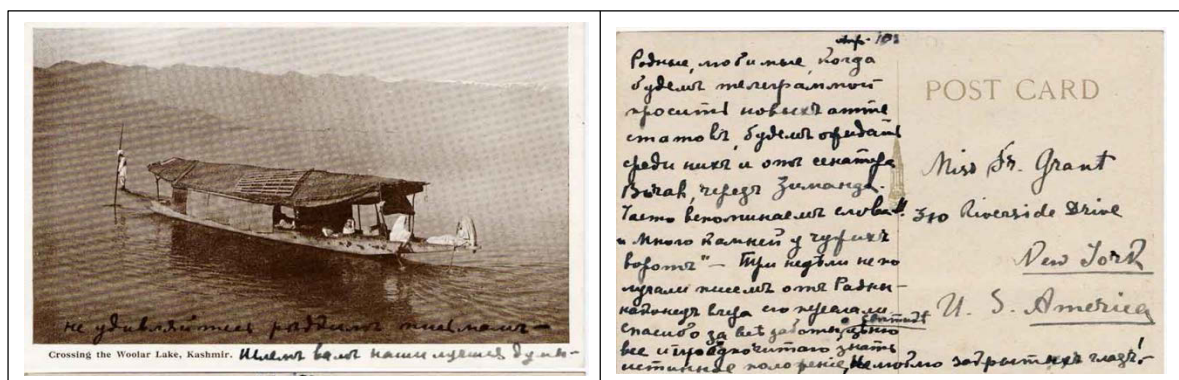 не удивляйтесь редкимъ письмамъ —
Crossing the Woolar Lake, Kashmir.
Шлемъ вамъ наши лучшія думы —
Родные, любимые, когда
будемъ телеграммой
просить новыхъ атте
статовъ, будемъ ожидать
среди нихъ и отъ сенатора
черезъ
Часто вспоминаемъ слова:
"Много камней у чужихъ
воротъ" — Три недѣли не по
лучали писемъ отъ Радны —
наконецъ вчера его
спасибо за всѣ заботы,
все и предпочитаю знать
истинное положеніе, не люблю закрытыхъ глазъ! —
POST CARD
Miss Fr. Grant
310 Riverside Drive
New York
U. S. America